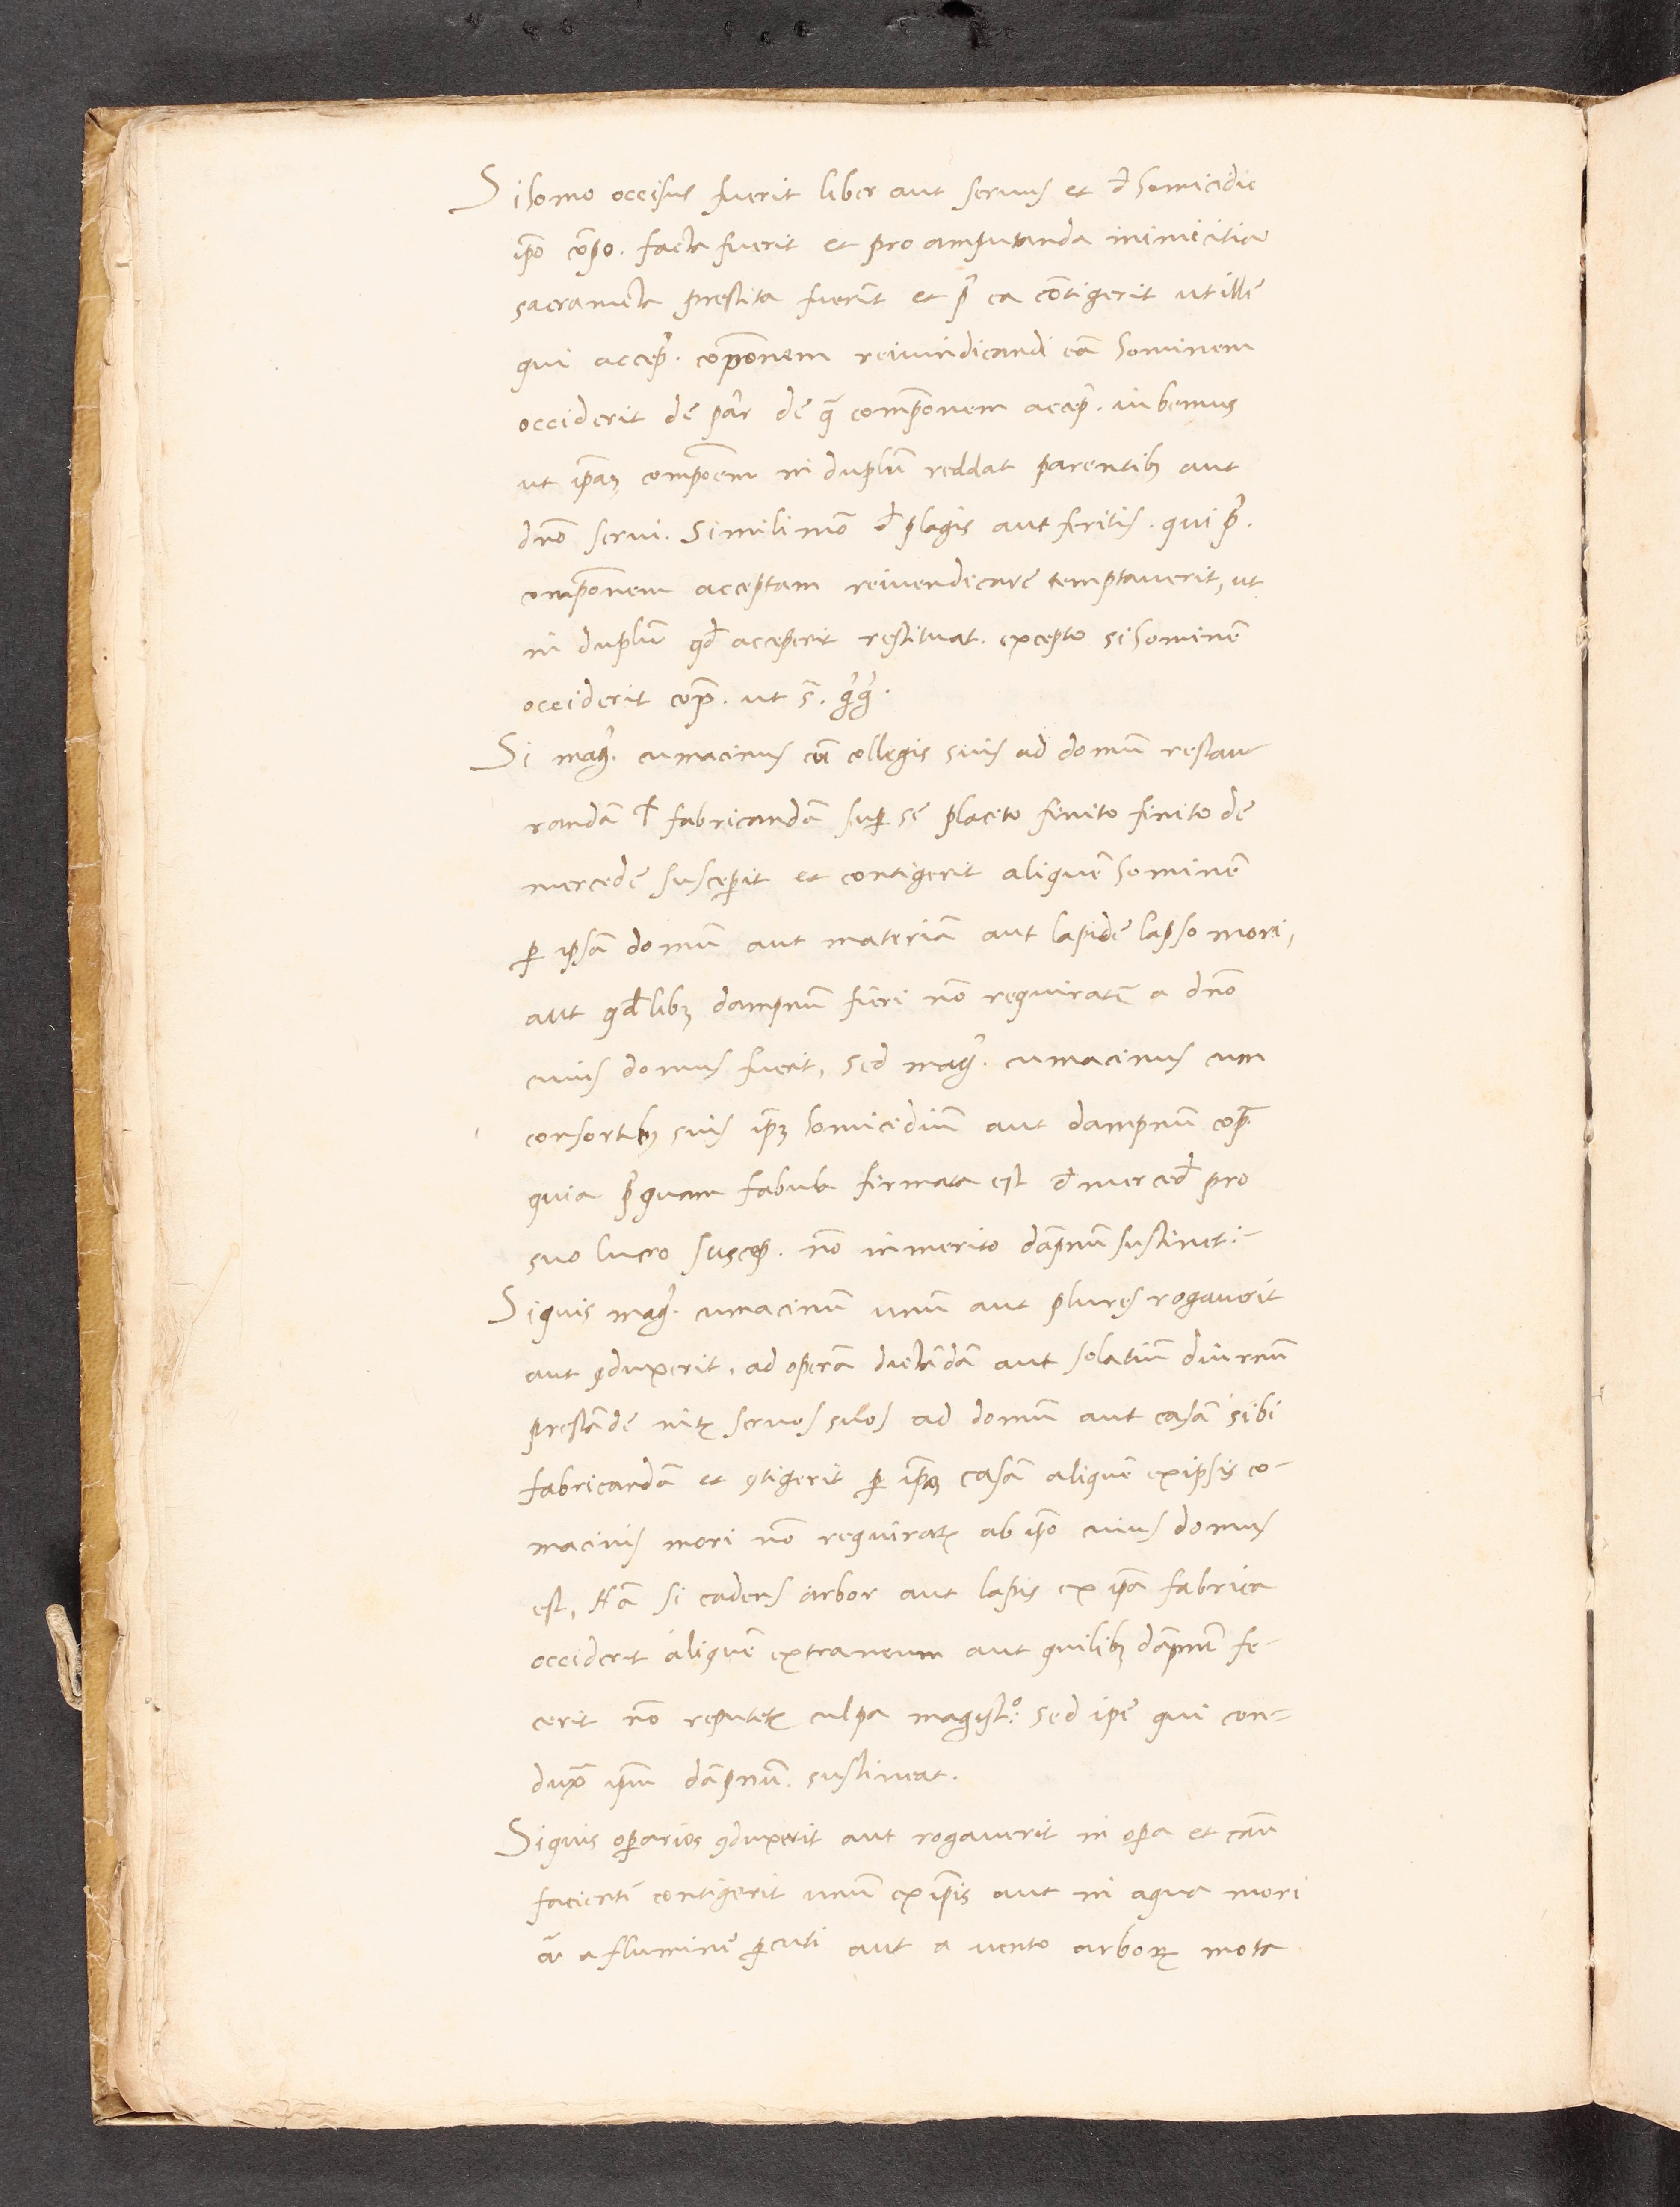 Si homo occisus fuerit liber aut servus et đ homicidio
ip̃o cõpo. facta fuerit et pro amputanda inimicitia
sacramẽta prestita fuerĩt et p̃ ea cõtigerit ut ille
qui accep̃. cop̃onem reivindicandi eã hominem
occiderit de par̃ de q̃ comp̃onem accep̃. iubemus
ut ip̃aꝫ compoẽm in duplũ reddat parentibꝫ aut
dño servi. Simili mõ đ plagis aut feritis. qui p̃.
comp̃onem acceptam reivendicare temptaverit, ut
in duplũ qđ acceperit restituat. excepto si hominẽ
occiderit cop̃. ut s̃. g̃g̃.
Si mag̃. cumacinus cũ collegis suis ad domũ restau
randã ł fabricandã suꝑ se placito finito finito de
mercede susceꝑit et contigerit aliquẽ hominẽ
ꝑ ipsã domũ aut materiã aut lapide lapso mori,
aut qđlibꝫ dampnũ fieri nõ requiratꝰ a dño
cuius domus fuerit, sed mag̃. cumacinus cum
consortibꝫ suis ip̃ꝫ homicidiũ aut dampnũ cop̃.
quia p̃quam fabula firmata est đ merceđ pro
suo lucro suscep̃. nõ inmerito dãpnũ sustinet:-
Si quis mag̃. cumacinũ unũ aut plures rogaverit
aut ꝯduxerit. ad operã dictãdã aut solatiũ diurnũ
prestãde intꝰ servos suos ad domũ aut casã sibi
fabricandã et ꝯtigerit ꝑ ip̃aꝫ casã aliquẽ ex ipsis co-
macinis mori nõ requiratꝰ ab ip̃o cuius domus
est, Nã si cadens arbor aut lapis ex ip̃a fabrica
occiderit aliquẽ extraneum aut quilibꝫ dãpnũ fe-
cerit nõ reputetꝰ culpa magist̊: sed ip̃e qui con-
dux̃ ip̃m dãpnũ. sustineat.
Si quis oꝑarios ꝯduxerit aut rogaverit in oꝑa et caũ
facienti contigerit unũ ex ip̃is aut in aqua mori
aũ a flumine ꝑcuti aut a vento arborꝰ mota